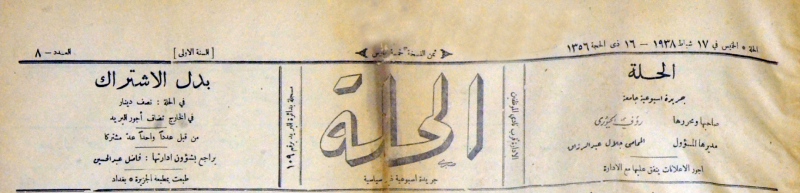 الحلة • الخميس في ١٧ شباط ١٩٣٨ — ١٦ ذي الحجة ١٣٥٦
ثمن النسخة
[السنة الاولى]
العدد — ٨
الحلة
جريدة اسبوعية جامعة
صاحبها ومحررها رؤوف الجبوري
مديرها المسؤول المحامي جلال عبد الرزاق
اجور الاعلانات يتفق عليها مع الادارة
الادارة قرب نادي الموظفين
الحلة
جريدة أسبوعية سياسية
مسجلة بدائرة البريد برقم ١٠٩
بدل الاشتراك
في الحلة : نصف دينار
في الخارج تضاف أجور البريد
من قبل عدداً واحداً عد مشتركا
يراجع بشؤون ادارتها : فاضل عبد الحسين
طبعت بمطبعة الجزيرة • بغداد